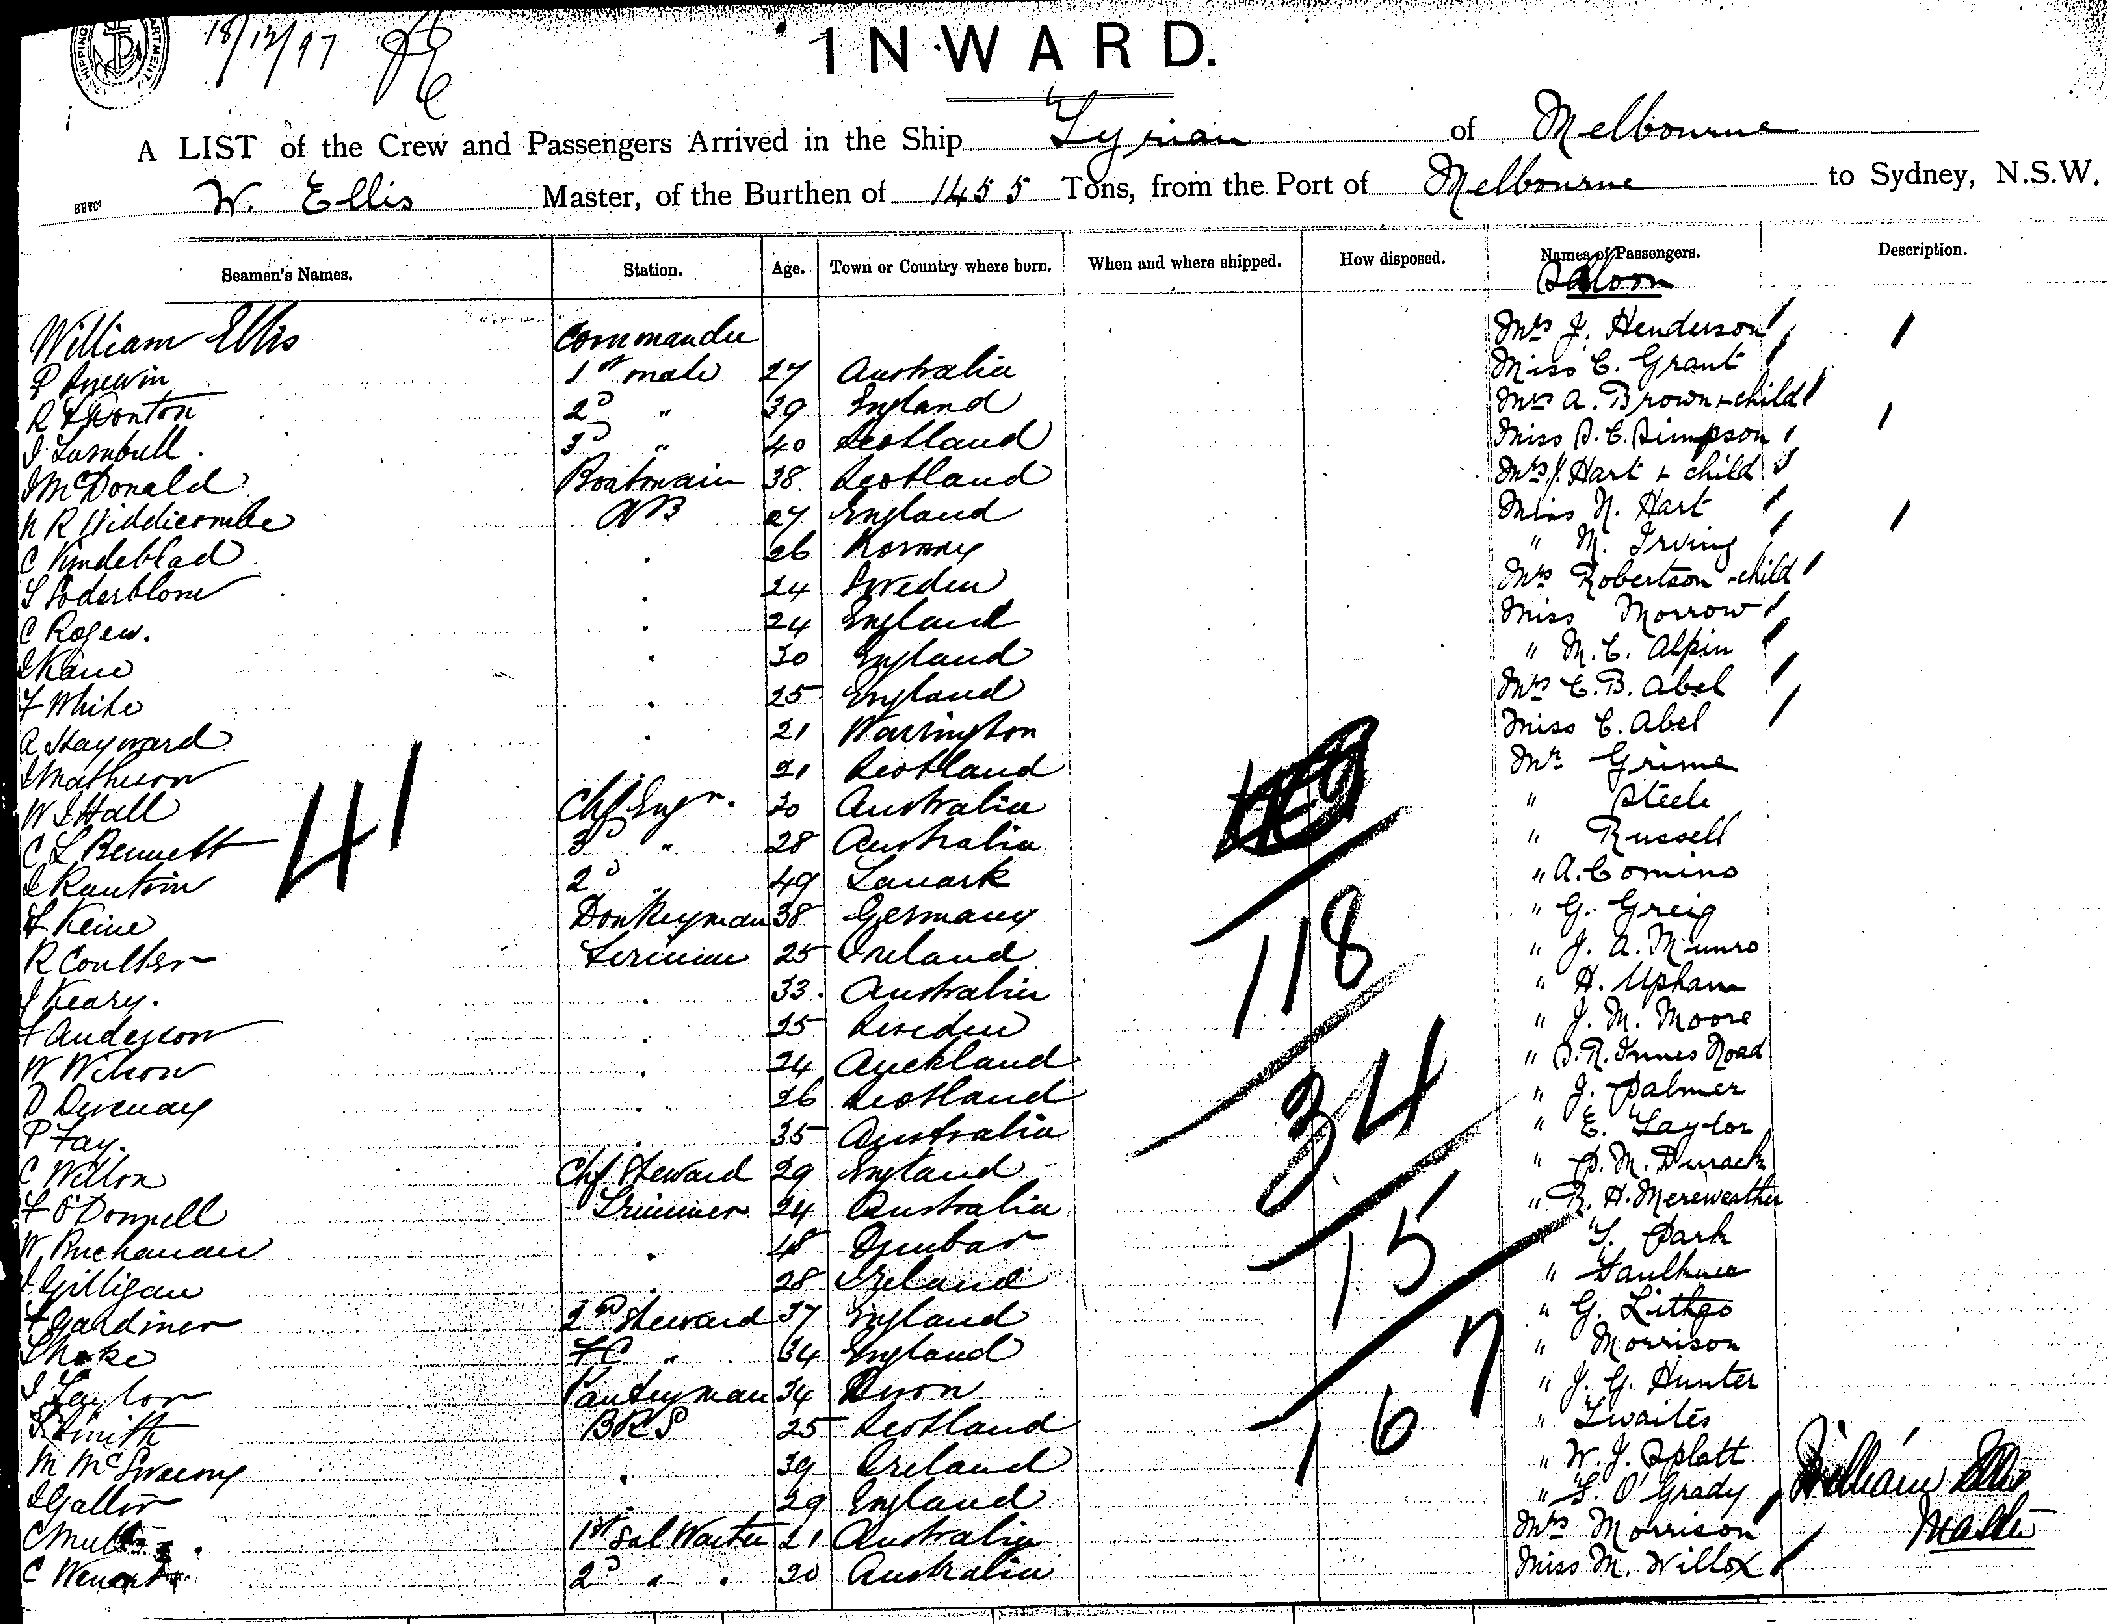 18/12/97
INWARD.
A LIST of the Crew and Passengers Arrived in the Ship Tyrian of Melbourne
W. Ellis Master, of the Burthen of 1455 Tons, from the Port of Melbourne to Sydney, N.S.W.
Seamen's Names. Station. Age. Town or Country where born. When and where shipped. How disposed. Names of Passengers. Description.
Saloon
William Ellis Commander Mrs J. Henderson
P 1st mate 27 Australia Miss C. Grant
R 2D " 39 England Mrs A. Brown + child
J Turnbull 3D " 40 Scotland Miss S. C. Simpson
J McDonald Boatswain 38 Scotland Mrs J. Hart + child
N R Widdicombe AB 27 England Miss N. Hart
C Lindeblad . 26 Norway " M. Irving
S Soderblom . 24 Sweden Mrs Robertson + child
C Rogers. . 24 England Miss Morrow
J Kane . 30 England " M. C. Alpin
F White . 25 England Mrs C. B. Abel
A Hayward . 21 Warrington Miss C. Abel
J Matheson 21 Scotland Mr Grime
W J Hall Chf Engr. 30 Australia " Steele
C L Bennett 3D " 28 Australia " Russell
J Rankin 2D " 49 Lanark " A. Comino
F Keine Donkeyman 38 Germany " G. Greig
R Coulter Fireman 25 Ireland " J. A. Munro
J Keary. . 33. Australia " H. Upham
F Anderson . 25 Sweden " J. M. Moore
W Wilson . 24 Auckland " S. R. Innes Noad
D Devenay . 26 Scotland " J. Palmer
P Fay. . 35 Australia " E. Taylor
C Wilton Chf Steward 29 England " P. M. Durack
F O'Donnell Trimmer 24 Australia " R. H. Merewether
W. Buchanan . 48 Dunbar " T. Park
J Gilligan . 28 Ireland " Faulkner
F Gardiner 2D Steward 37 England " G. Lithgo
FC " 34 England " Morrison
J Taylor Pantryman 34 Devon " J. G. Hunter
Smith BRS 25 Scotland " Twaites
M McSweeny . 39 Ireland " W. J. Splatt
J . 29 England " O'Grady
C 1st Sal Waiter 21 Australia Mrs Morrison
C 2D " . 20 Australia Miss M. Willox
41
118
34
15
167
William Ellis
Master